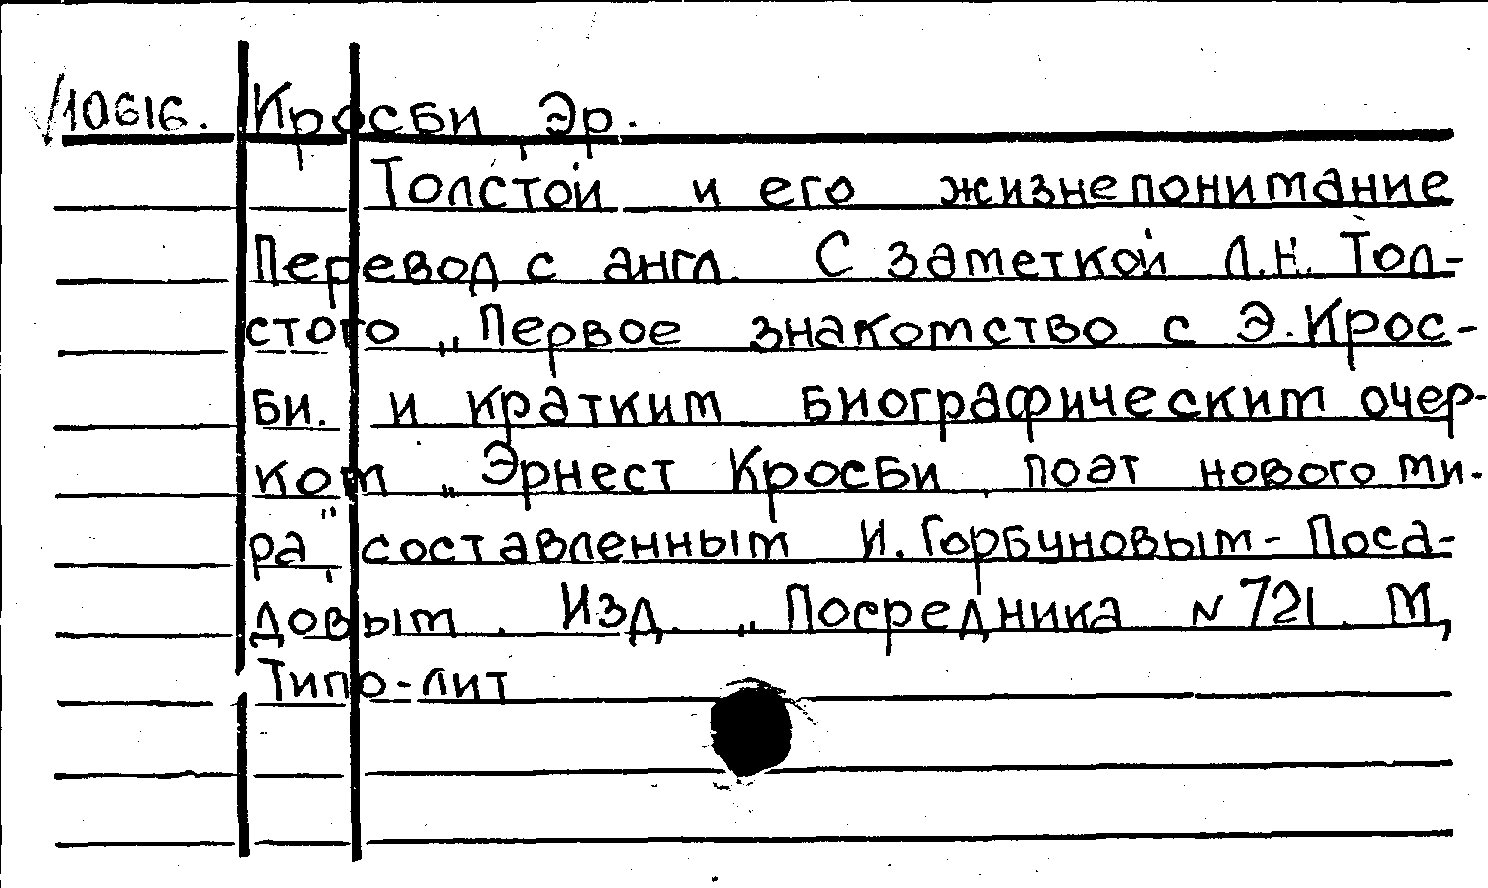 √10616. Кросби Эр.
Толстой и его жизнепонимание
Перевод с англ. С заметкой Л.Н. Тол-
стого „Первое знакомство с Э.Крос-
би. и кратким биографическим очер-
ком „Эрнест Кросби, поэт нового ми-
ра", составленным И. Горбуновым-Поса-
довым. Изд. „Посредника N 721. М,
Типо-лит